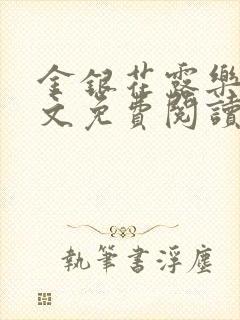 金銀花露樂
文免費閱讀
執筆書浮塵